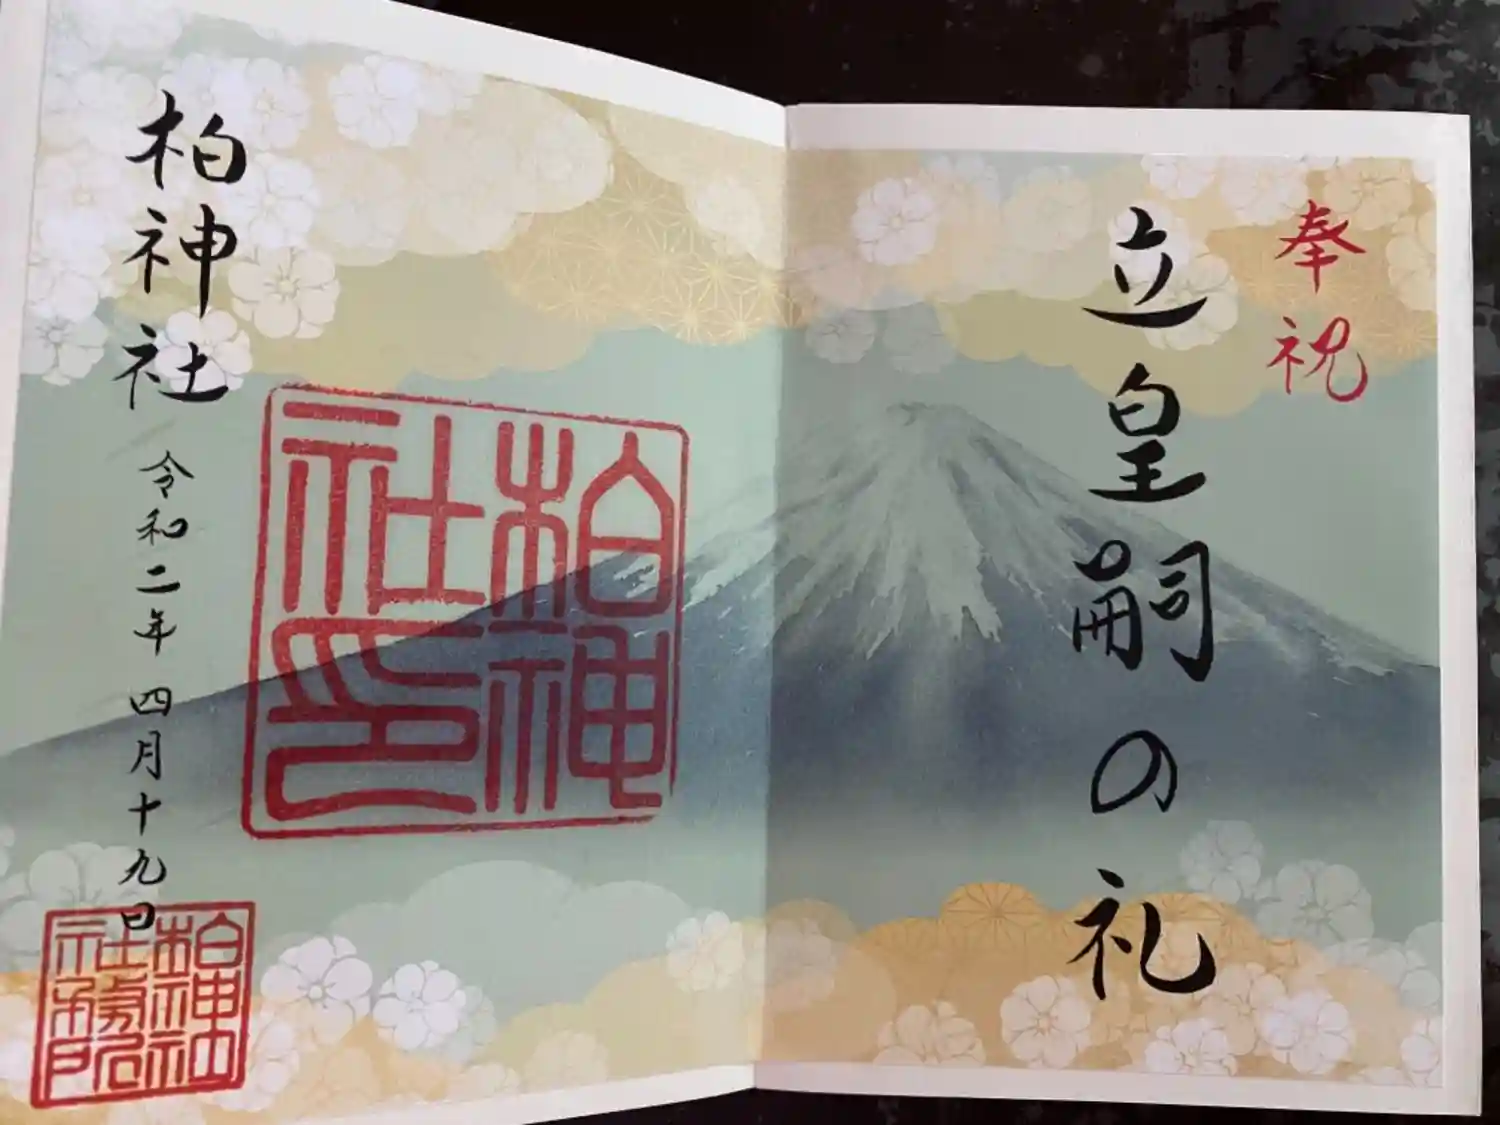 奉祝
立皇嗣の礼
柏神社
令和二年四月十九日
柏神
社印
柏神社
社務院